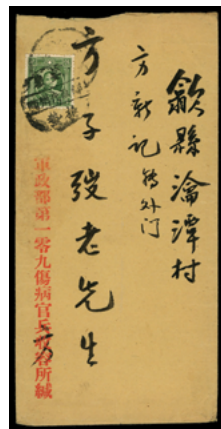 歙縣瀹潭村
方新記轉外门
方子弢老先生
軍政部第一零九傷病官兵收容所緘